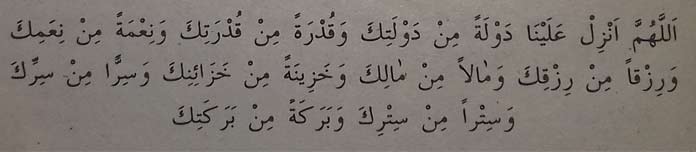 اَللّٰهُمَّ اَنْزِلْ عَلَيْنَا دَوْلَةً مِنْ دَوْلَتِكَ وَقُدْرَةً مِنْ قُدْرَتِكَ وَنِعْمَةً مِنْ نِعَمِكَ
وَرِزْقاً مِنْ رِزْقِكَ وَمٰالاً مِنْ مٰالِكَ وَخَزِينَةً مِنْ خَزَائِنِكَ وَسِرًّا مِنْ سِرِّكَ
وَسِتْراً مِنْ سِتْرِكَ وَبَرَكَةً مِنْ بَرَكَتِكَ